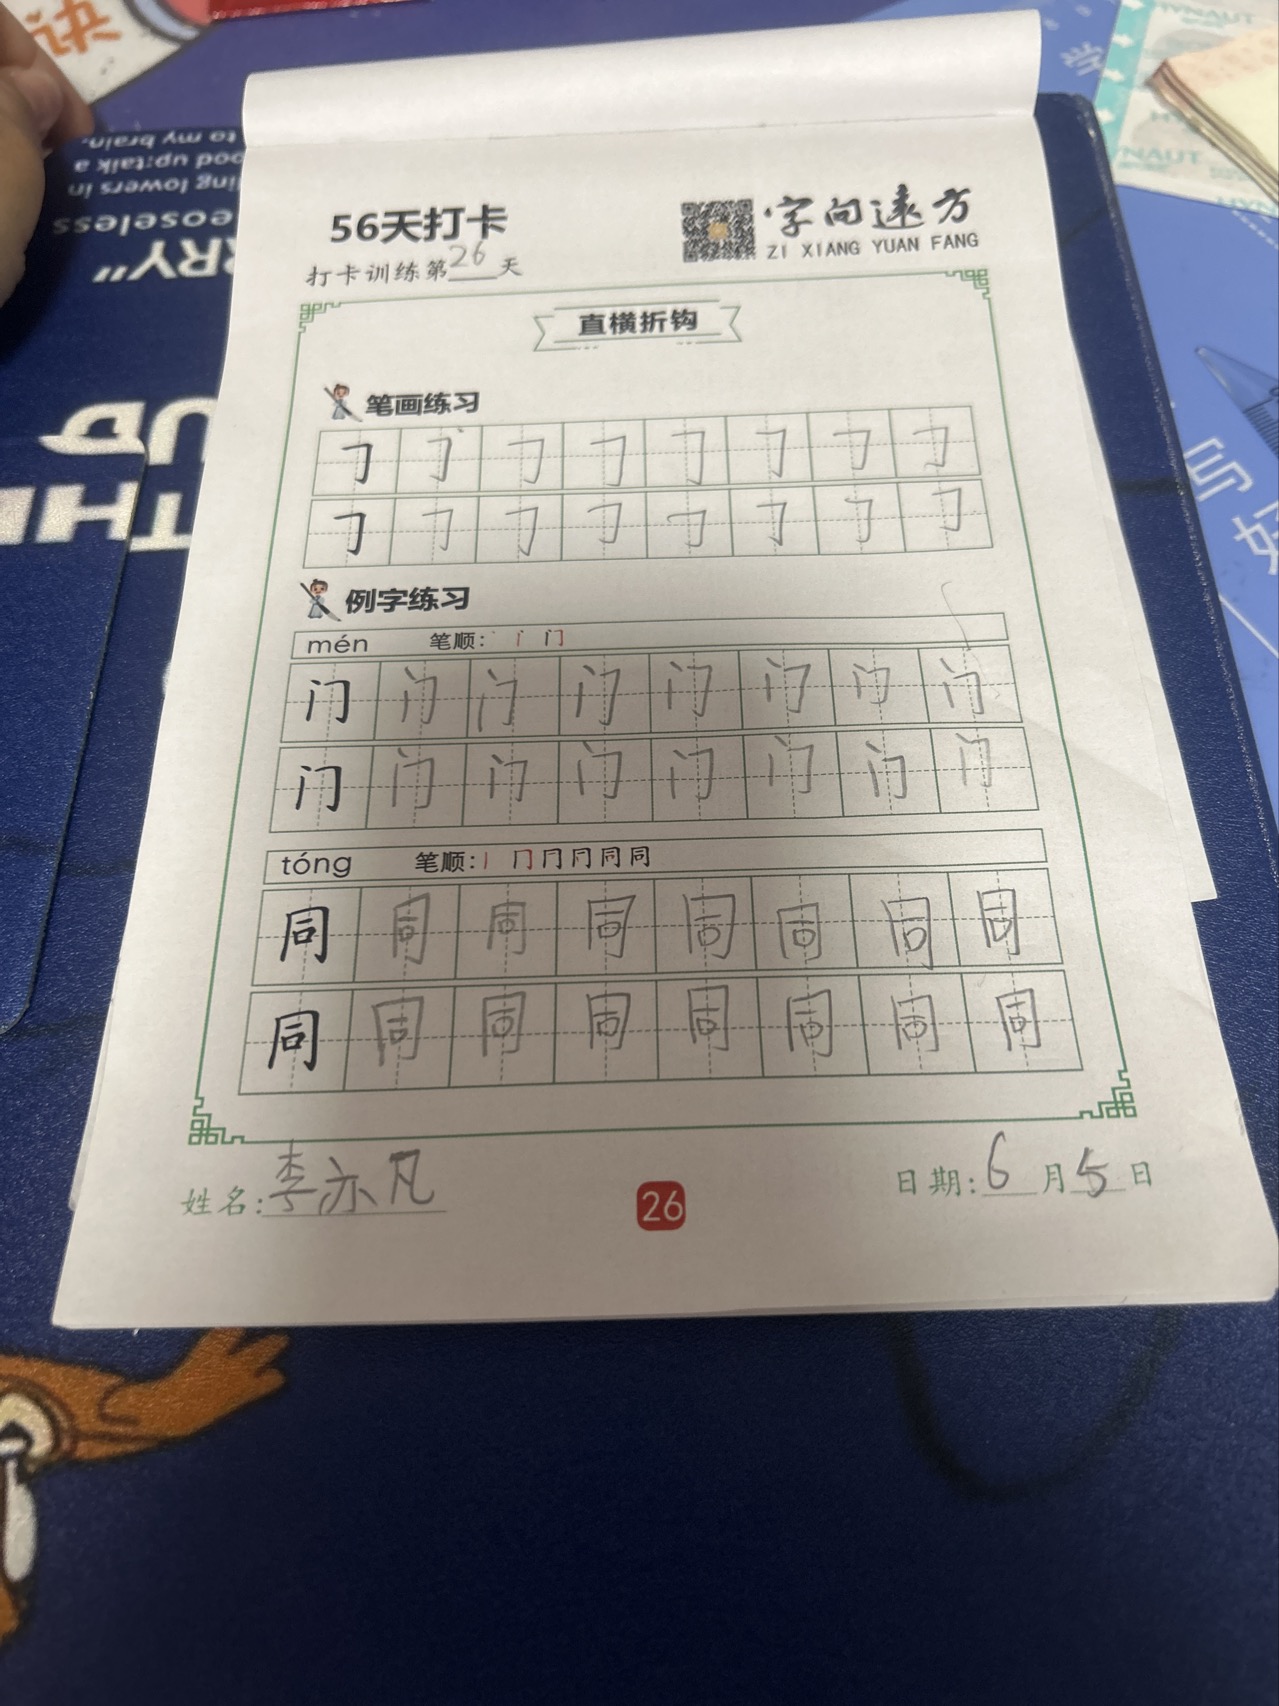 诀
to my brain.
ood up:talk a
ing lowers in
eoseless
RRY"
UD
THE
HYNAUT
NAUT
学
写
好
56天打卡
字向远方
ZI XIANG YUAN FANG
打卡训练第26天
直横折钩
笔画练习
㇆ ㇆ ㇆ ㇆ ㇆ ㇆ ㇆ ㇆
㇆ ㇆ ㇆ ㇆ ㇆ ㇆ ㇆ ㇆
例字练习
mén 笔顺: 丶 门
门 门 门 门 门 门 门 门
门 门 门 门 门 门 门 门
tóng 笔顺: 丨 冂 冂 冂 同 同
同 同 同 同 同 同 同 同
同 同 同 同 同 同 同 同
姓名:李亦凡
26
日期:6月5日